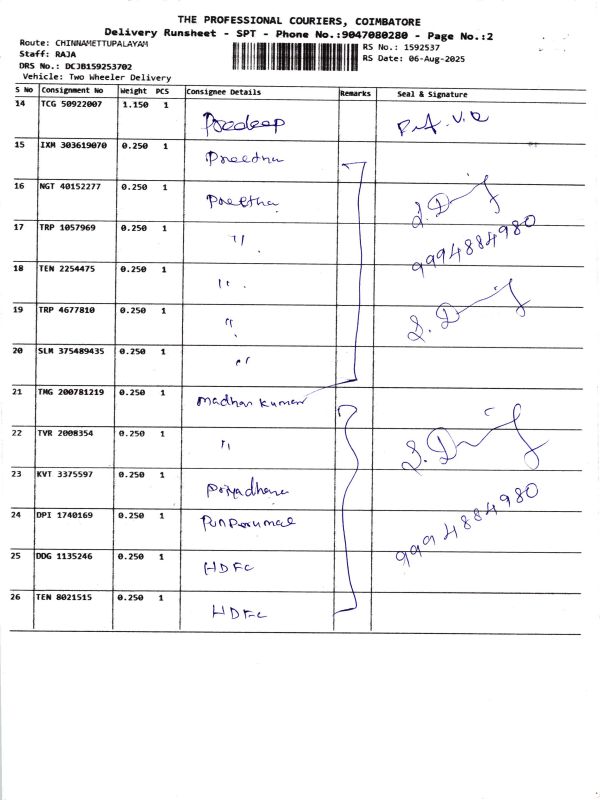 THE PROFESSIONAL COURIERS, COIMBATORE
Delivery Runsheet - SPT - Phone No.:9047080280 - Page No.:2
Route: CHINNAMETTUPALAYAM
RS No.: 1592537
Staff: RAJA
RS Date: 06-Aug-2025
DRS No.: DCJB159253702
Vehicle: Two Wheeler Delivery
S No Consignment No Weight PCS Consignee Details Remarks Seal & Signature
14 TCG 50922007 1.150 1 Pradeep
15 IXM 303619070 0.250 1 Preetha
16 NGT 40152277 0.250 1 Preetha
17 TRP 1057969 0.250 1 "
9994884980
18 TEN 2254475 0.250 1 "
19 TRP 4677810 0.250 1 "
20 SLM 375489435 0.250 1 "
21 TMG 200781219 0.250 1 madhan kumar
22 TVR 2008354 0.250 1 "
23 KVT 3375597 0.250 1 Priyadhana
24 DPI 1740169 0.250 1
9994884980
25 DDG 1135246 0.250 1 HDFC
26 TEN 8021515 0.250 1 HDFC